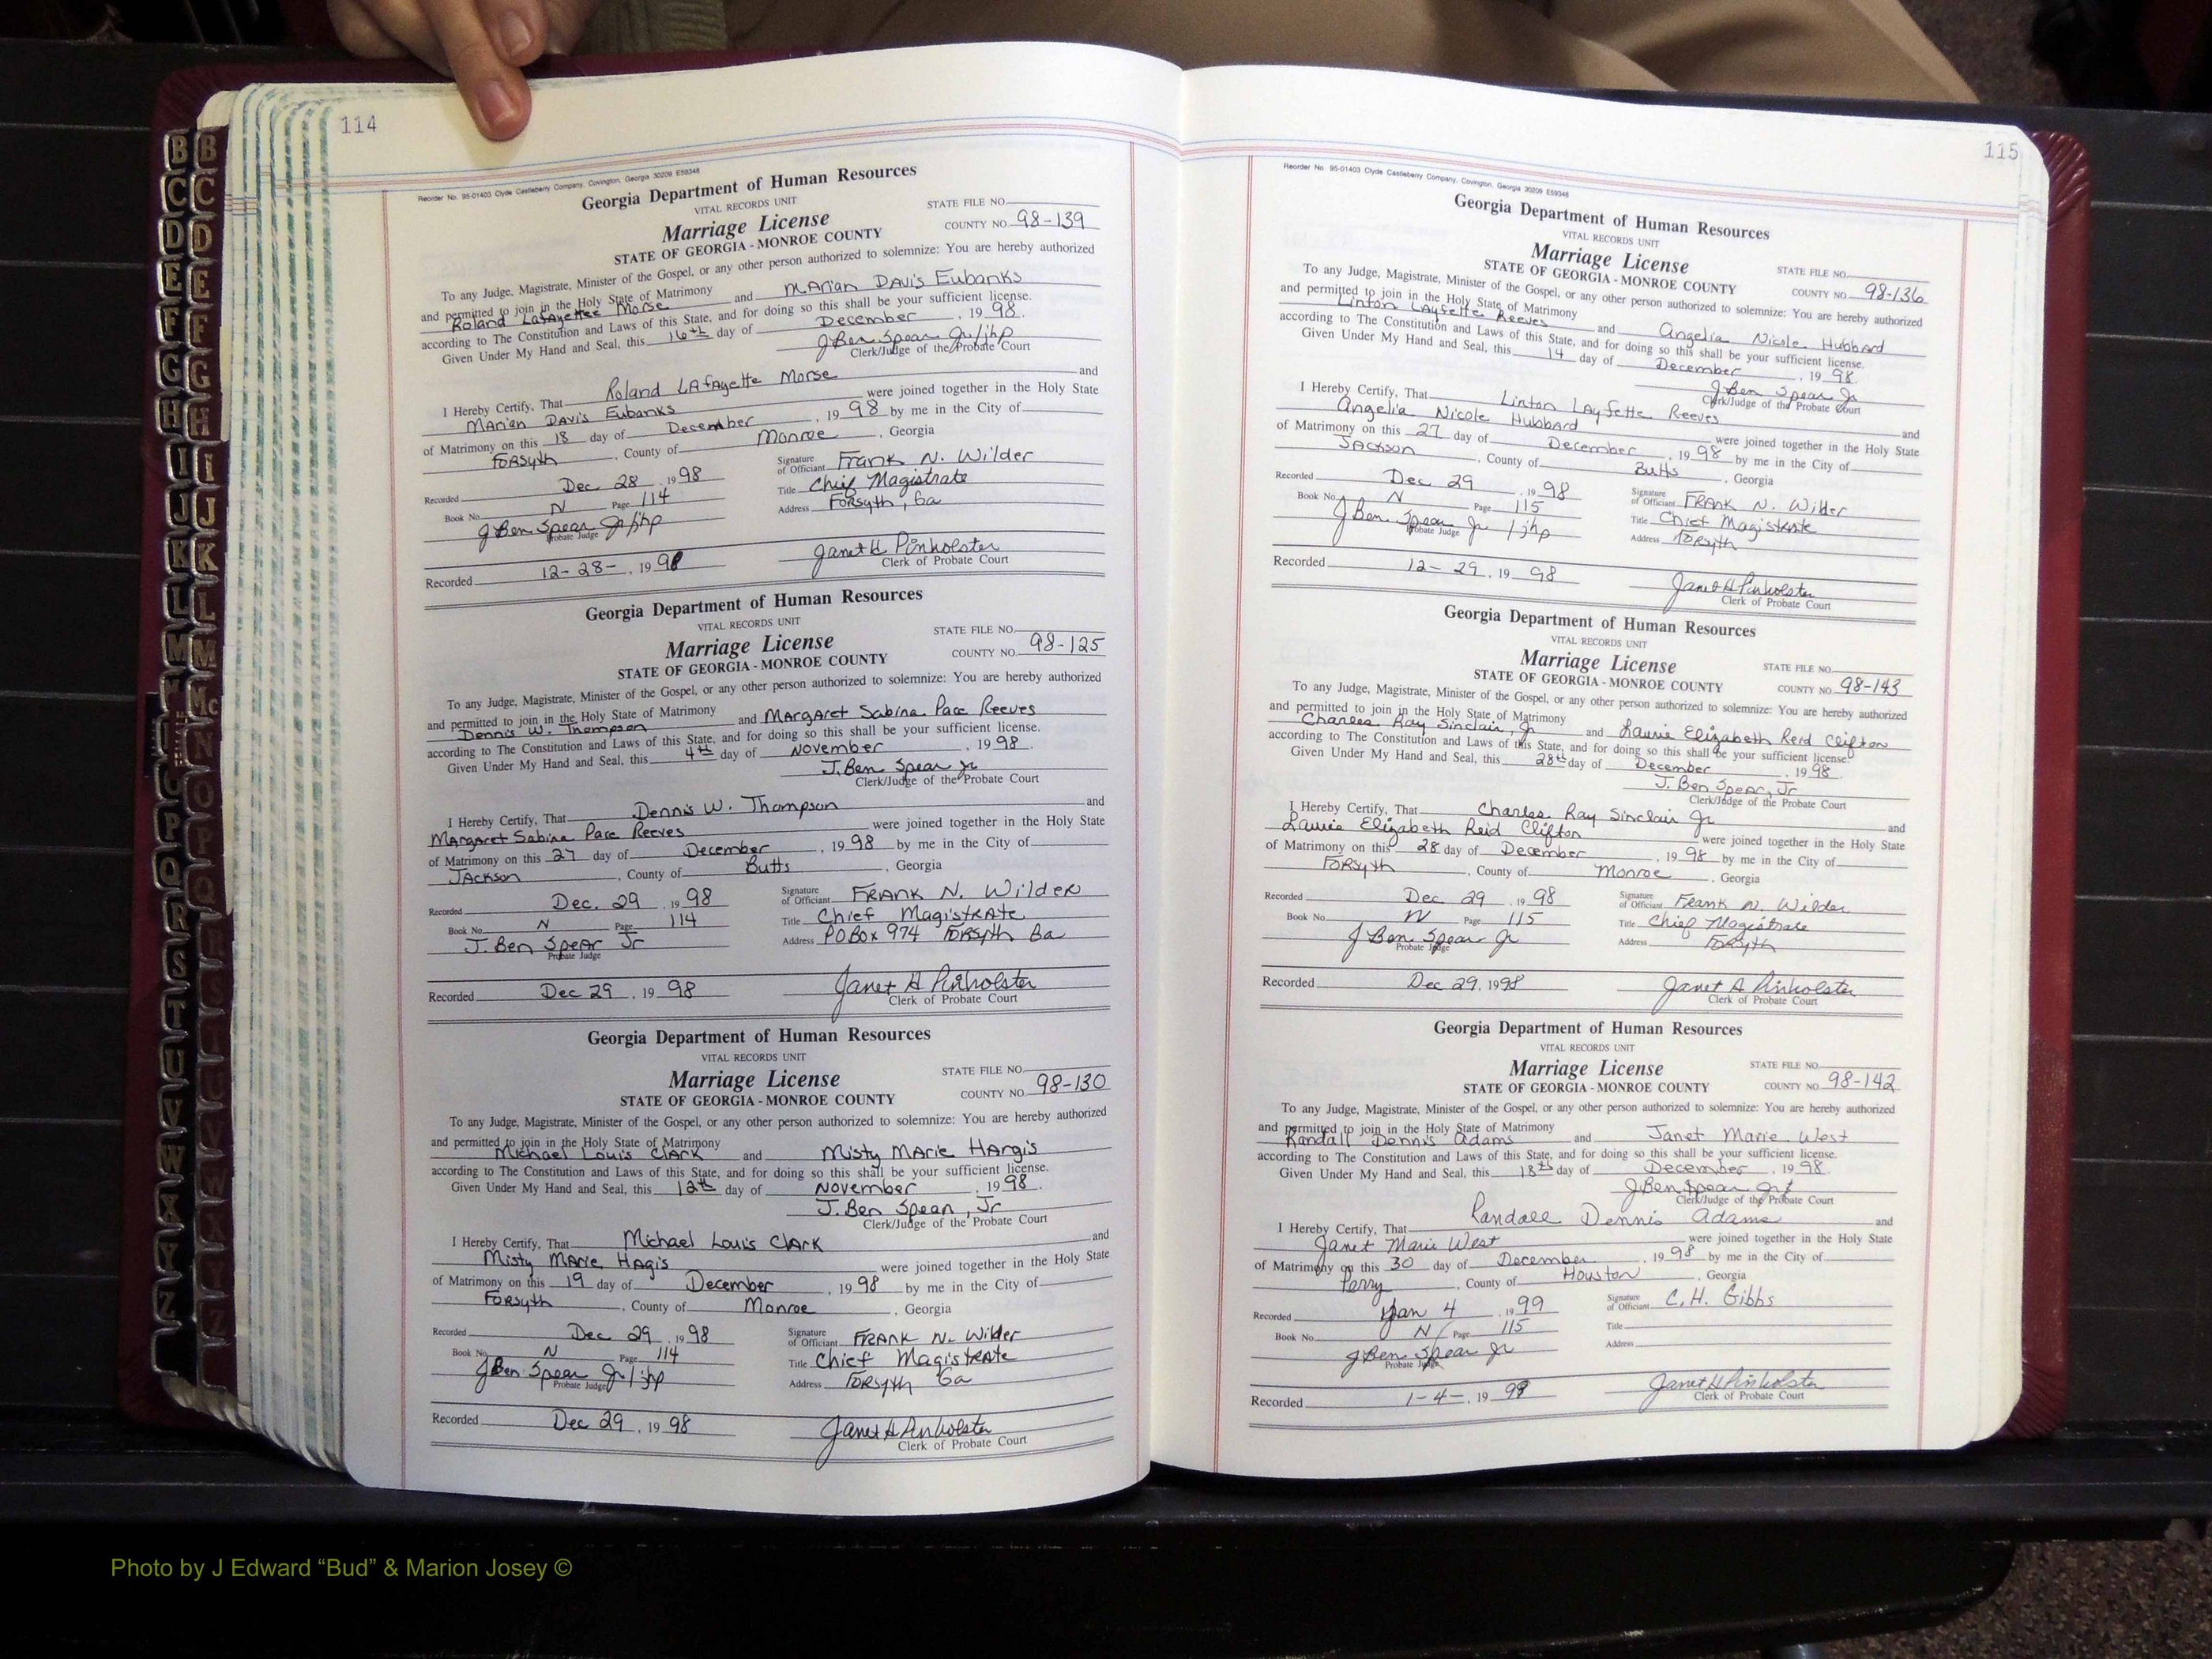 114
Reorder No. 95-01403 Clyde Castleberry Company, Covington, Georgia 30209 E59348
Georgia Department of Human Resources
VITAL RECORDS UNIT
STATE FILE NO.
Marriage License
COUNTY NO. 98-139
STATE OF GEORGIA - MONROE COUNTY
To any Judge, Magistrate, Minister of the Gospel, or any other person authorized to solemnize: You are hereby authorized
and permitted to join in the Holy State of Matrimony
Roland Lafayettee Morse and Marian Davis Eubanks
according to The Constitution and Laws of this State, and for doing so this shall be your sufficient license.
Given Under My Hand and Seal, this 16th day of December, 19 98.
J Ben Spear Jr/jhp
Clerk/Judge of the Probate Court
I Hereby Certify, That Roland LAfAyette Morse and
Marian Davis Eubanks were joined together in the Holy State
of Matrimony on this 18 day of December, 19 98 by me in the City of
Forsyth, County of Monroe, Georgia
Recorded Dec 28, 19 98
Signature of Officiant Frank N. Wilder
Book No. N Page 114
Title Chief Magistrate
Address Forsyth, Ga
J Ben Spear Jr/jhp
Probate Judge
Recorded 12-28-, 19 98
Janet H Pinholster
Clerk of Probate Court
Georgia Department of Human Resources
VITAL RECORDS UNIT
STATE FILE NO.
Marriage License
COUNTY NO. 98-125
STATE OF GEORGIA - MONROE COUNTY
To any Judge, Magistrate, Minister of the Gospel, or any other person authorized to solemnize: You are hereby authorized
and permitted to join in the Holy State of Matrimony
Dennis W. Thompson and Margaret Sabina Pace Reeves
according to The Constitution and Laws of this State, and for doing so this shall be your sufficient license.
Given Under My Hand and Seal, this 4th day of November, 19 98.
J. Ben Spear Jr
Clerk/Judge of the Probate Court
I Hereby Certify, That Dennis W. Thompson and
Margaret Sabina Pace Reeves were joined together in the Holy State
of Matrimony on this 27 day of December, 19 98 by me in the City of
Jackson, County of Butts, Georgia
Recorded Dec. 29, 19 98
Signature of Officiant Frank N. Wilder
Book No. N Page 114
Title Chief Magistrate
Address PO Box 974 Forsyth Ga
J. Ben Spear Jr
Probate Judge
Recorded Dec 29, 19 98
Janet H Pinholster
Clerk of Probate Court
Georgia Department of Human Resources
VITAL RECORDS UNIT
STATE FILE NO.
Marriage License
COUNTY NO. 98-130
STATE OF GEORGIA - MONROE COUNTY
To any Judge, Magistrate, Minister of the Gospel, or any other person authorized to solemnize: You are hereby authorized
and permitted to join in the Holy State of Matrimony
Michael Louis Clark and Misty Marie Hargis
according to The Constitution and Laws of this State, and for doing so this shall be your sufficient license.
Given Under My Hand and Seal, this 12th day of November, 19 98.
J. Ben Spear, Jr
Clerk/Judge of the Probate Court
I Hereby Certify, That Michael Louis Clark and
Misty Marie Hagis were joined together in the Holy State
of Matrimony on this 19 day of December, 19 98 by me in the City of
Forsyth, County of Monroe, Georgia
Recorded Dec 29, 19 98
Signature of Officiant Frank N. Wilder
Book No. N Page 114
Title Chief Magistrate
Address Forsyth Ga
J Ben Spear Jr/jhp
Probate Judge
Recorded Dec 29, 19 98
Janet H Pinholster
Clerk of Probate Court
115
Reorder No. 95-01403 Clyde Castleberry Company, Covington, Georgia 30209 E59348
Georgia Department of Human Resources
VITAL RECORDS UNIT
Marriage License
STATE FILE NO.
STATE OF GEORGIA - MONROE COUNTY
COUNTY NO. 98-136
To any Judge, Magistrate, Minister of the Gospel, or any other person authorized to solemnize: You are hereby authorized
and permitted to join in the Holy State of Matrimony
Linton Layfette Reeves and Angelia Nicole Hubbard
according to The Constitution and Laws of this State, and for doing so this shall be your sufficient license.
Given Under My Hand and Seal, this 14 day of December, 19 98.
J Ben Spear Jr
Clerk/Judge of the Probate Court
I Hereby Certify, That Linton Layfette Reeves and
Angelia Nicole Hubbard were joined together in the Holy State
of Matrimony on this 27 day of December, 19 98 by me in the City of
Jackson, County of Butts, Georgia
Recorded Dec 29, 19 98
Signature of Officiant Frank N. Wilder
Book No. N Page 115
Title Chief Magistrate
Address Forsyth
J Ben Spear Jr /jhp
Probate Judge
Recorded 12-29, 19 98
Janet H Pinholster
Clerk of Probate Court
Georgia Department of Human Resources
VITAL RECORDS UNIT
Marriage License
STATE FILE NO.
STATE OF GEORGIA - MONROE COUNTY
COUNTY NO. 98-143
To any Judge, Magistrate, Minister of the Gospel, or any other person authorized to solemnize: You are hereby authorized
and permitted to join in the Holy State of Matrimony
Charles Ray Sinclair, Jr and Laurie Elizabeth Reid Clifton
according to The Constitution and Laws of this State, and for doing so this shall be your sufficient license.
Given Under My Hand and Seal, this 28th day of December, 19 98.
J. Ben Spear, Jr
Clerk/Judge of the Probate Court
I Hereby Certify, That Charles Ray Sinclair Jr and
Laurie Elizabeth Reid Clifton were joined together in the Holy State
of Matrimony on this 28 day of December, 19 98 by me in the City of
Forsyth, County of Monroe, Georgia
Recorded Dec 29, 19 98
Signature of Officiant Frank N. Wilder
Book No. N Page 115
Title Chief Magistrate
Address Forsyth
J Ben Spear Jr
Probate Judge
Recorded Dec 29, 1998
Janet H Pinholster
Clerk of Probate Court
Georgia Department of Human Resources
VITAL RECORDS UNIT
Marriage License
STATE FILE NO.
STATE OF GEORGIA - MONROE COUNTY
COUNTY NO. 98-142
To any Judge, Magistrate, Minister of the Gospel, or any other person authorized to solemnize: You are hereby authorized
and permitted to join in the Holy State of Matrimony
Randall Dennis Adams and Janet Marie West
according to The Constitution and Laws of this State, and for doing so this shall be your sufficient license.
Given Under My Hand and Seal, this 18th day of December, 19 98.
J Ben Spear Jr
Clerk/Judge of the Probate Court
I Hereby Certify, That Randall Dennis Adams and
Janet Marie West were joined together in the Holy State
of Matrimony on this 30 day of December, 19 98 by me in the City of
Perry, County of Houston, Georgia
Recorded Jan 4, 19 99
Signature of Officiant C. H. Gibbs
Book No. N Page 115
Title
Address
J Ben Spear Jr
Probate Judge
Recorded 1-4-, 19 99
Janet H Pinholster
Clerk of Probate Court
B B
C C
D D
E E
F F
G G
H H
I I
J J
K K
L L
M M
Mc
N
O
P P
Q Q
R R
S S
T T
U U
V V
W W
X X
Y Y
Z Z
Photo by J Edward “Bud” & Marion Josey ©